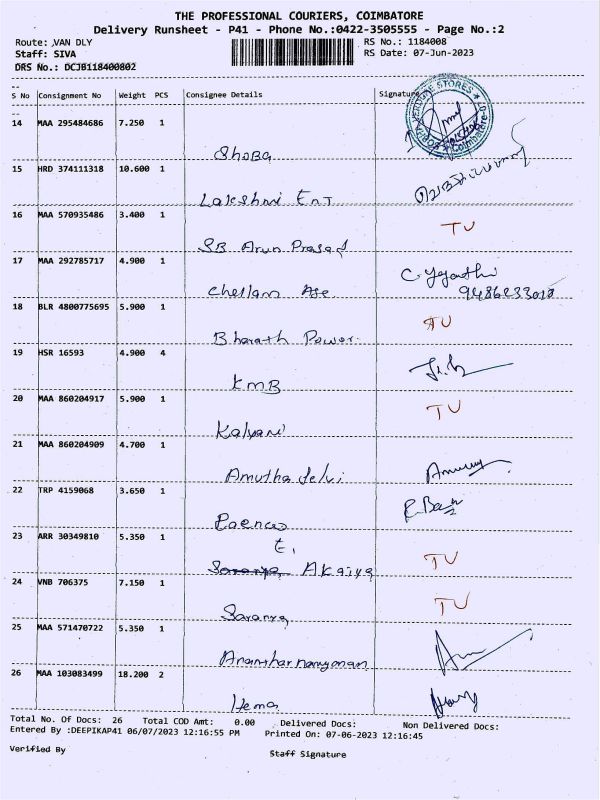 THE PROFESSIONAL COURIERS, COIMBATORE
Delivery Runsheet - P41 - Phone No.:0422-3505555 - Page No.:2
Route: VAN DLY
RS No.: 1184008
Staff: SIVA
RS Date: 07-Jun-2023
DRS No.: DCJB118400802
S No Consignment No Weight PCS Consignee Details Signature
14 MAA 295484686 7.250 1
Shoba
15 HRD 374111318 10.600 1
Lakshmi Ent
16 MAA 570935486 3.400 1
SB Arun Prasad
TU
17 MAA 292785717 4.900 1
Chellam Age
18 BLR 4800775695 5.900 1
Bharath Power
19 HSR 16593 4.900 4
KMB
20 MAA 860204917 5.900 1
Kalyani
TU
21 MAA 860204909 4.700 1
Amutha Selvi
22 TRP 4159068 3.650 1
23 ARR 30349810 5.350 1
E. Akaiya
TU
24 VNB 706375 7.150 1
Saranya
TU
25 MAA 571470722 5.350 1
26 MAA 103083499 18.200 2
Hema
Total No. Of Docs: 26 Total COD Amt: 0.00 Delivered Docs: Non Delivered Docs:
Entered By :DEEPIKAP41 06/07/2023 12:16:55 PM Printed On: 07-06-2023 12:16:45
Verified By
Staff Signature